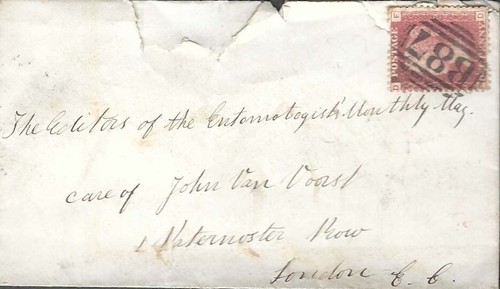 The Editors of the Entomologist's Monthly Mag.
care of John Van Voorst
1 Paternoster Row
London E. C.
POSTAGE
887